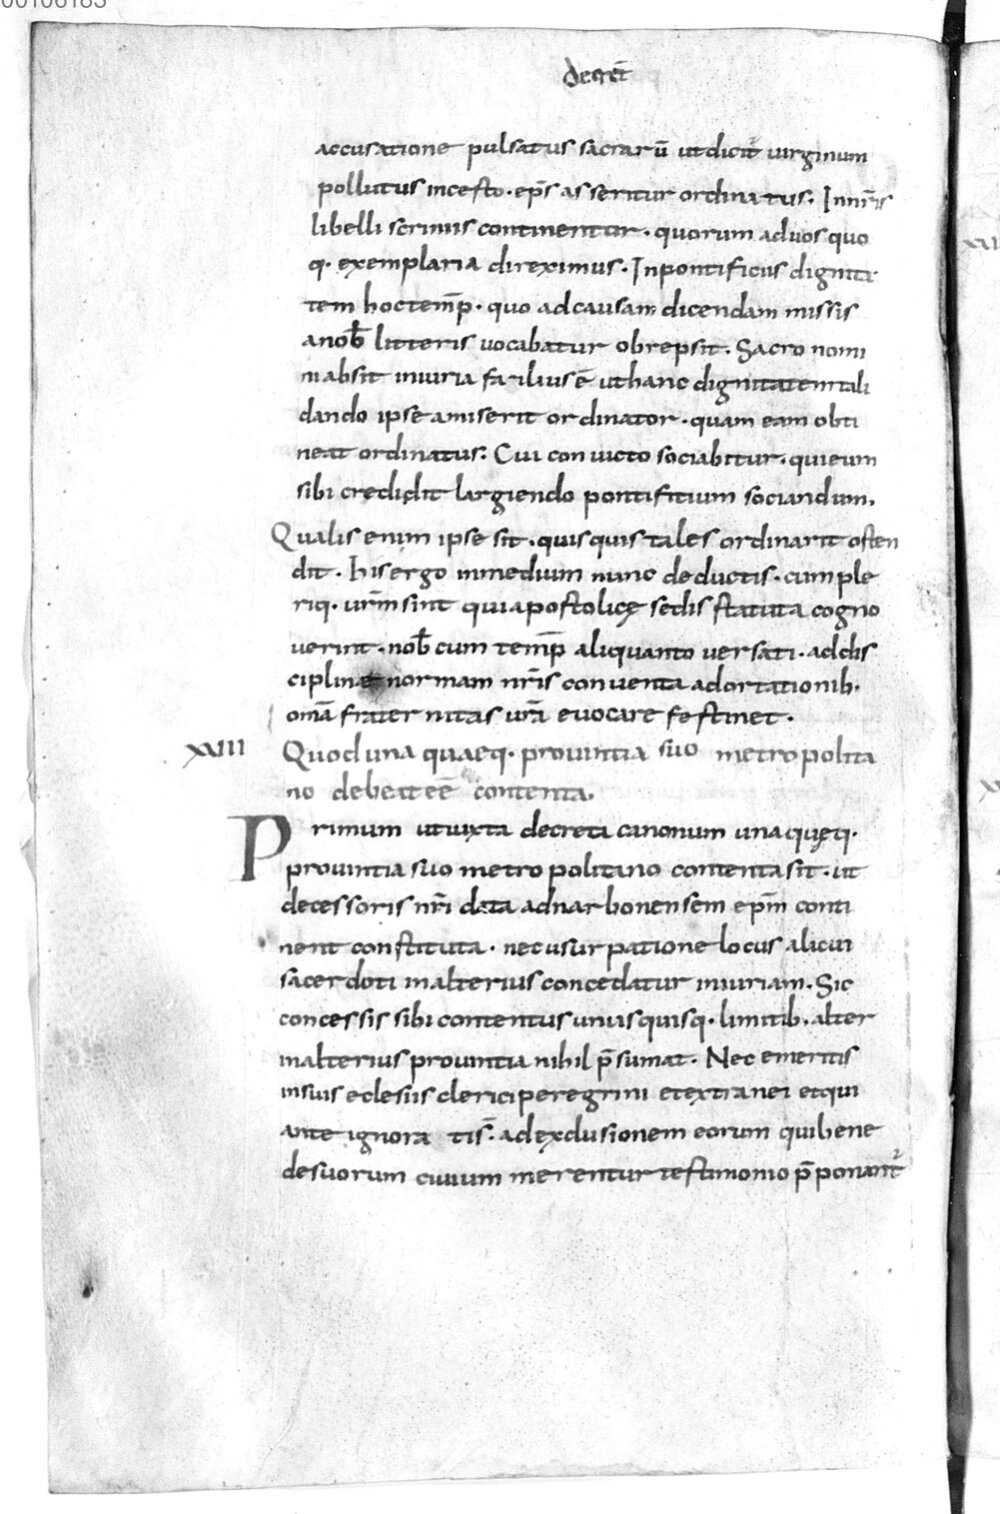 00106183
decret̄
accusatione pulsatus sacrarū ut dicit᷑ uirginum
pollutus incesto · ep̄s asseritur ordinatus. In nr̄is
libelli scriniis continentur · quorum ad uos quo
q· exemplaria direximus · In pontificiis dignita
tem hoc tem̄p · quo ad causam dicendam missis
a nob̄ litteris uocabatur obrepsit. Sacro nomi
ni absit iniuria facilius ē ut hanc dignitatem tali
dando ipse amiserit ordinator · quam eam obti
neat ordinatus. Cui conuicto sociabitur · qui eum
sibi credidit largiendo pontifitium sociandum.
Qualis enim ipse sit · quisquis tales ordinarit osten
dit · his ergo in medium nunc deductis · cum ple
riq· ur̄m sint qui apostolicę sedis statuta cogno
uerint · nob̄ cum tem̄p aliquanto uersati · ad dis
ciplinae normam nr̄is conuenta adortationib·
omā fraternitas ur̄a euocare festinet ·
XXIII Quod una quaeq· prouintia suo metropolita
no debeat eē contenta.
Primum ut iuxta decreta canonum una quęq·
prouintia suo metropolitano contenta sit · ut
decessoris nr̄i data ad narbonensem ep̄m conti
nent constituta · nec usurpatione locus alicui
sacerdoti in alterius concedatur iniuriam · Sic
concessis sibi contentus unusquisq· limitib· alter
in alterius prouintia nihil p̄sumat · Nec emeritis
in suis eclesiis clerici peregrini et extranei et qui
ante ignora tis̄ · ad exclusionem eorum qui bene
de suorum ciuium merentur testimonio p̄ponant᷑